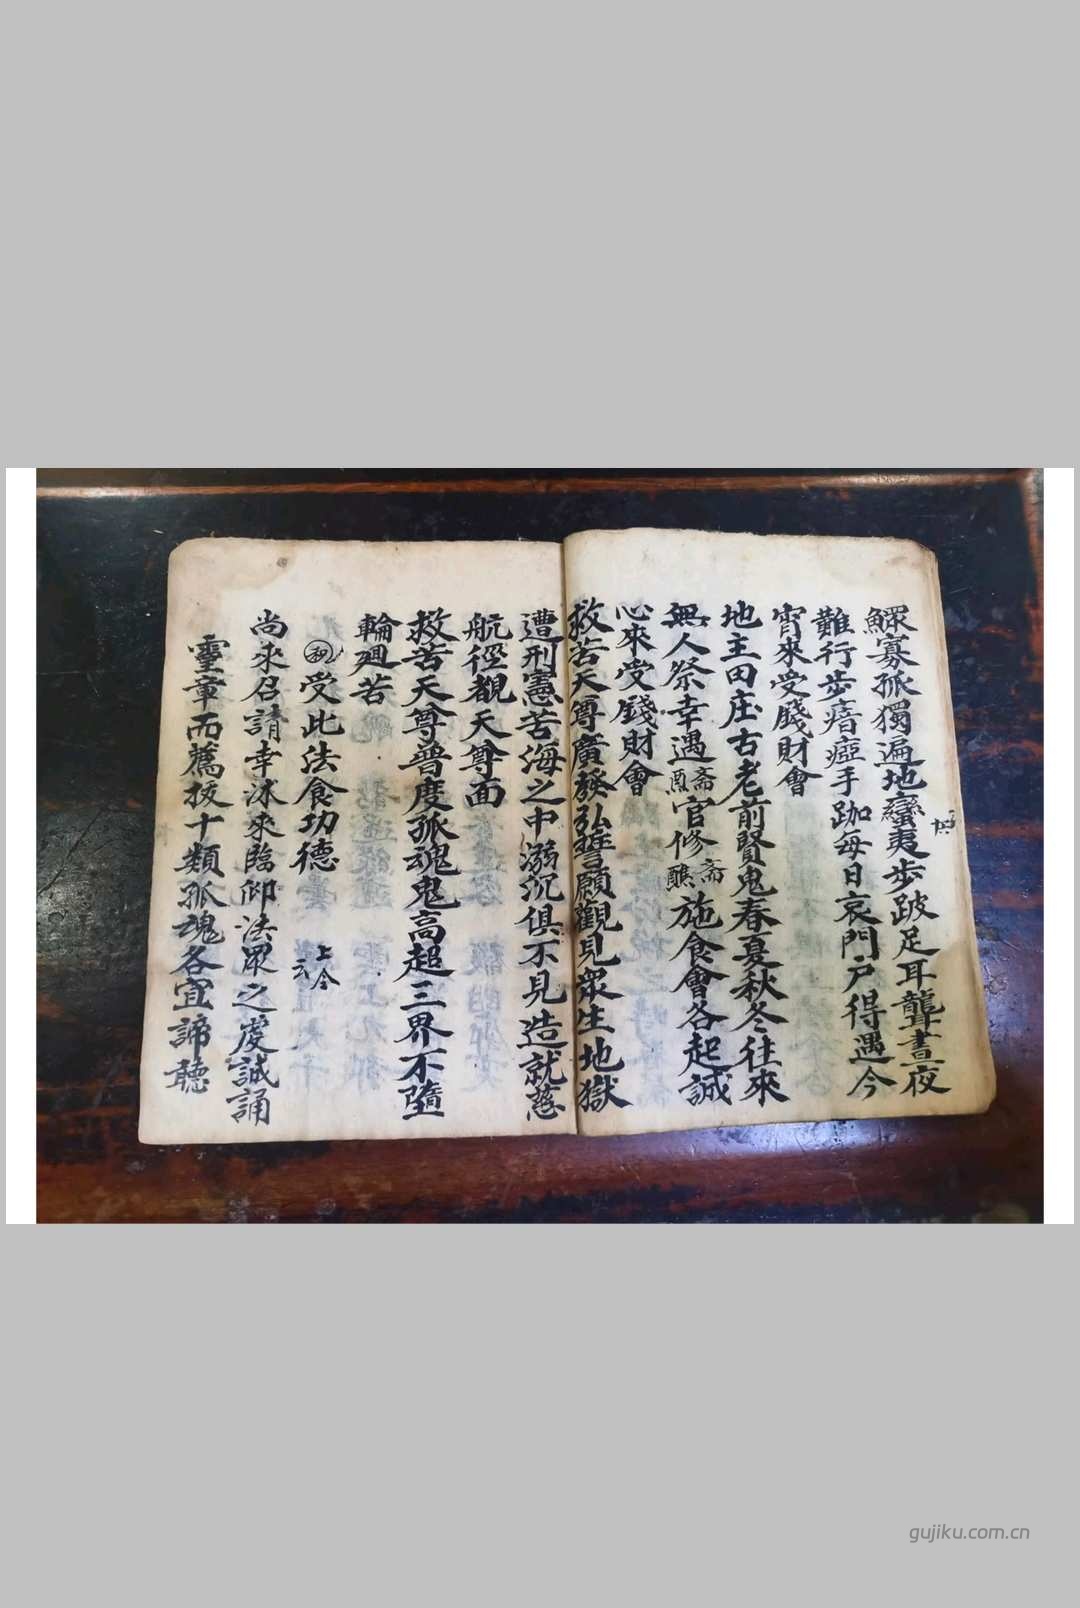 鰥寡孤獨遍地蠻夷步跛足耳聾晝夜
難行步瘖瘂手跏每日哀門戶得遇今
宵來受賤財會
地主田庄古老前賢鬼春夏秋冬往來
無人祭幸遇齋官修齋醮施食會各起誠
心來受錢財會
救苦天尊廣發弘誓願觀見衆生地獄
遭刑憲苦海之中溺沉俱不見造就慈
航徑覩天尊面
救苦天尊普度孤魂鬼高超三界不墮
輪廻苦
和 受此法食功德
上今
云
尚來召請幸沐來臨仰法眾之虔誠誦
靈章而薦拔十類孤魂各宜諦聽
gujiku.com.cn